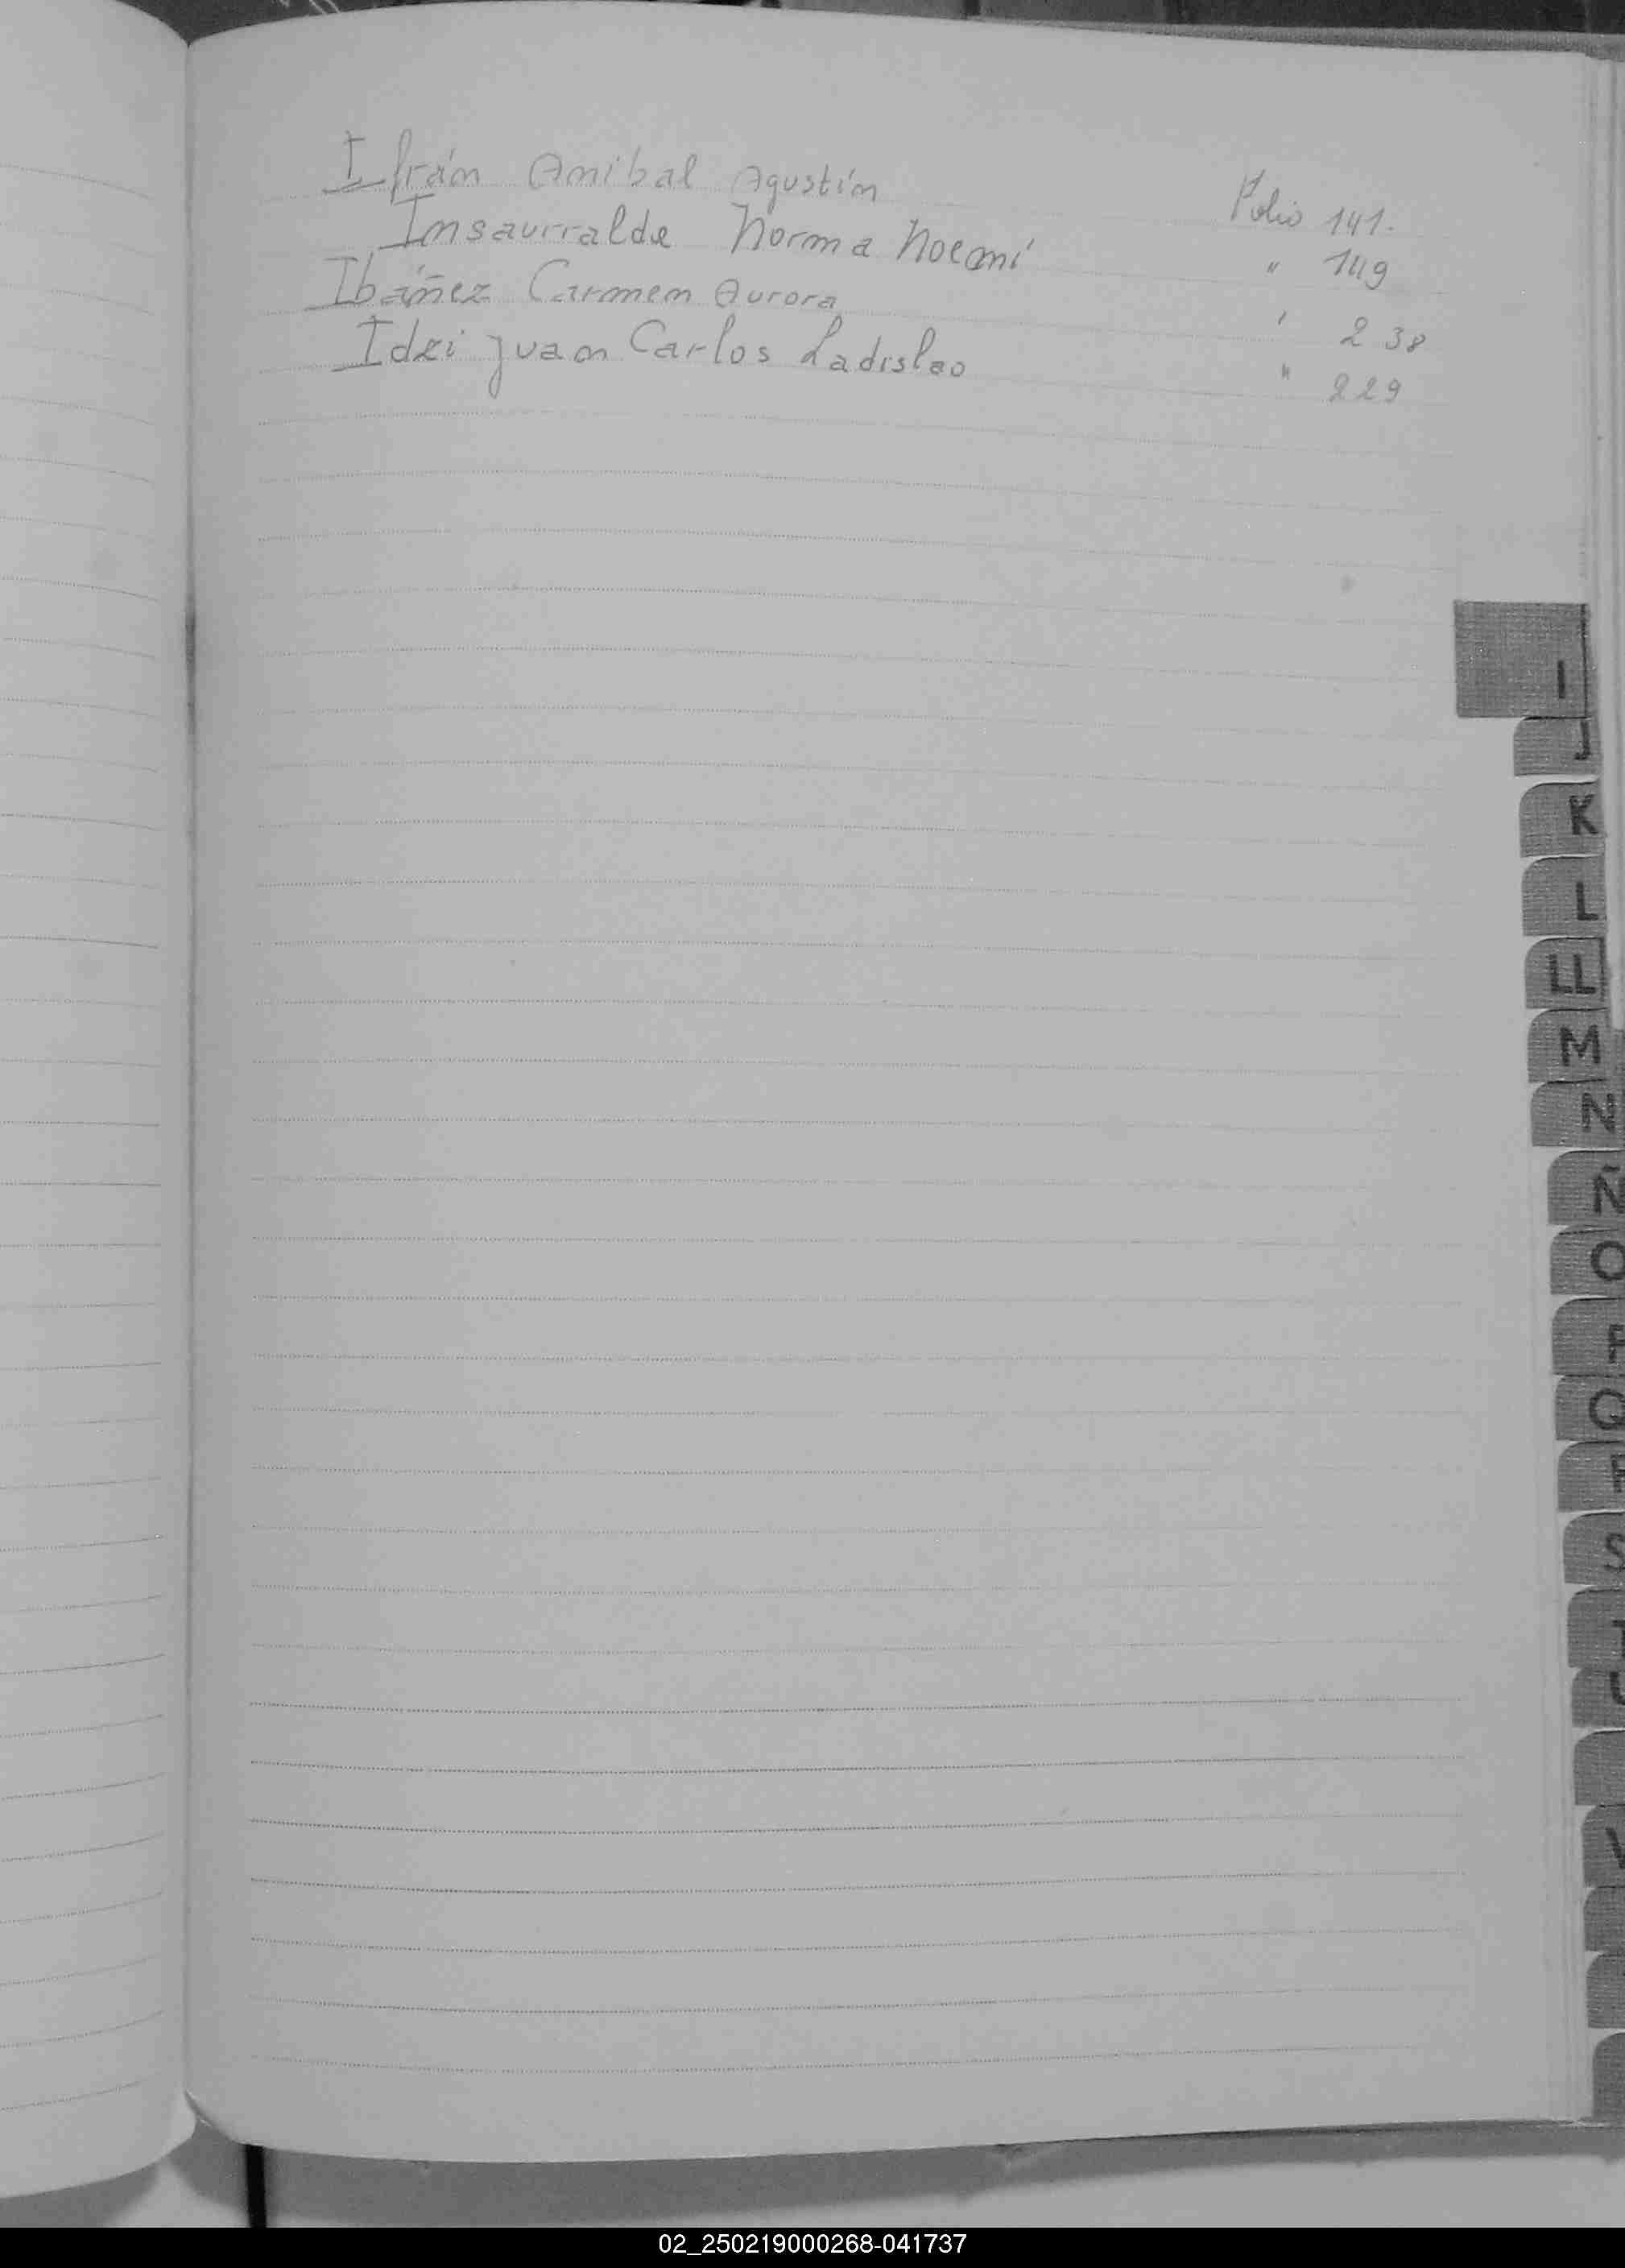 Ifrán Anibal Agustín Folio 141.
Insaurralde Norma Noemí " 149
Ibáñez Carmen Aurora ' 238
Idzi Juan Carlos Ladislao " 229
I
J
K
L
LL
M
N
Ñ
O
P
Q
R
S
T
U
V
02_250219000268-041737